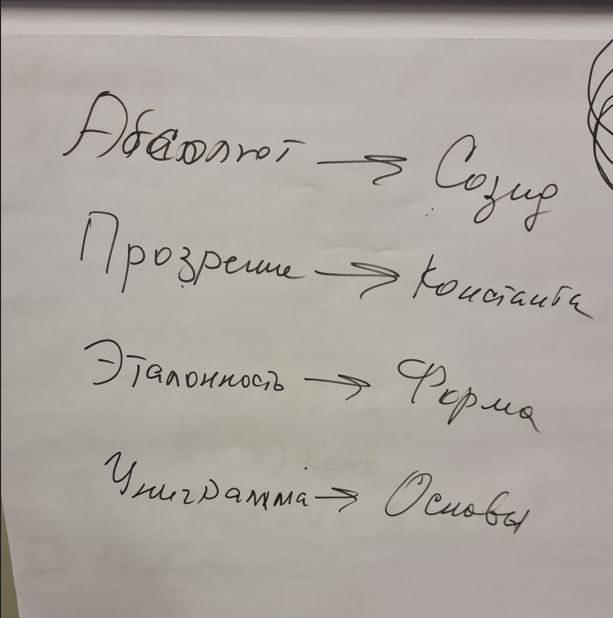 Абсолют → Созид
Прозрение → Константа
Эталонность → Форма
Униграмма → Основы